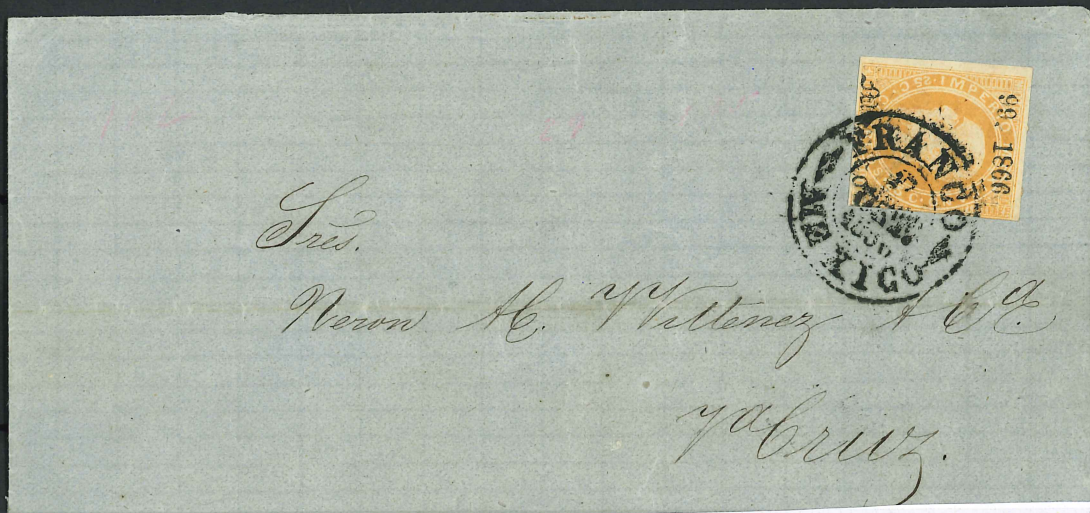 IMPERIO
25 C.
99. 1866
FRANCO
MEXICO
Sres.
Veron H. Wittenez & Ca.
VaCruz.